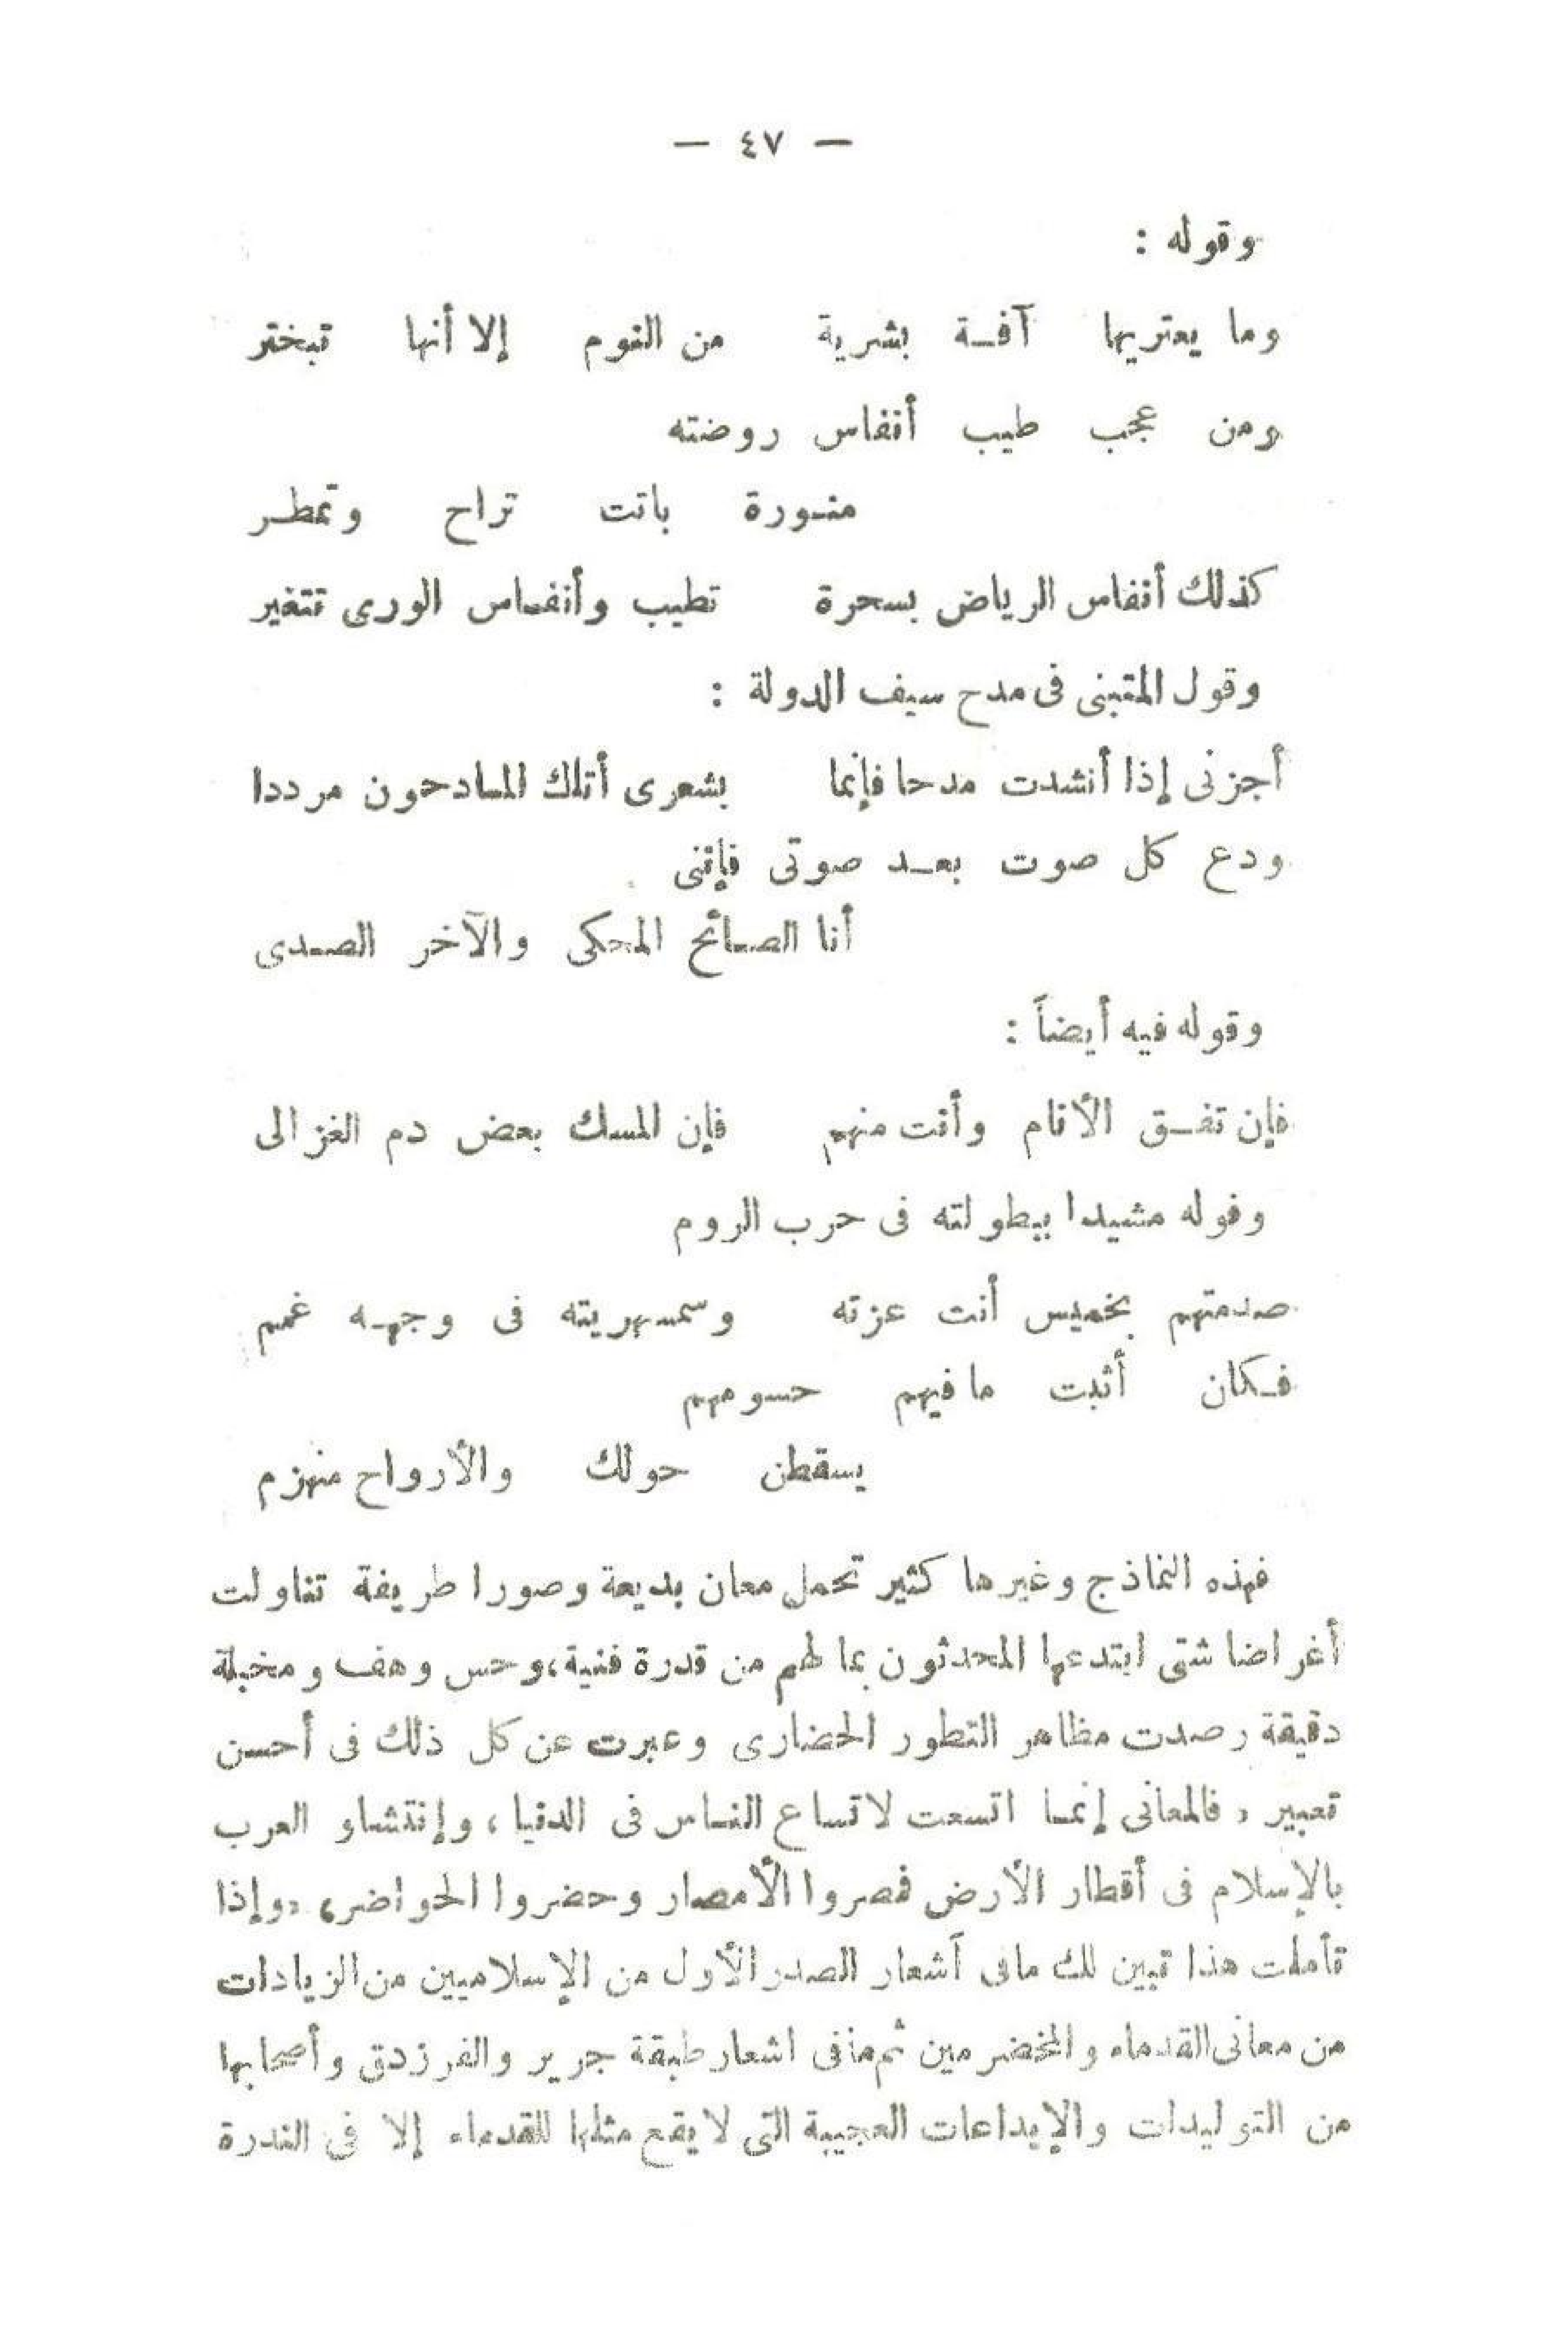 — ٤٧ —
وقوله :
وما يعتريها آفـة بشرية من النوم إلا أنها تبختر
ومن عجب طيب أنفاس روضته
منـورة باتت تراح وتمطـر
كذلك أنفاس الرياض بسحرة تطيب وأنفـاس الورى تتغير
وقول المتبنى فى مدح سيف الدولة :
أجزنى إذا أنشدت مدحا فإنما بشعرى أتاك المـادحون مرددا
ودع كل صوت بعـد صوتى فإننى
أنا الصـائح المحكى والآخر الصـدى
وقوله فيه أيضاً :
فإن تفـق الأنام وأنت منهم فإن المسك بعض دم الغزالى
وقوله مشيدا ببطولته فى حرب الروم
صدمتهم بخميس أنت عزته وسمهريته فى وجهـه غمم
فـكان أثبت ما فيهم حسومهم
يسقطن حولك والأرواح منهزم
فهذه النماذج وغيرها كثير تحمل معان بديعة وصورا طريفة تناولت
أغراضا شتى ابتدعها المحدثون بما لهم من قدرة فنية، وحس وهف ومخيلة
دقيقة رصدت مظاهر التطور الحضارى وعبرت عن كل ذلك فى أحسن
تعبير ، فالمعانى إنمـا اتسعت لاتساع النـاس فى الدنيا ، وإنتشاو العرب
بالإسلام فى أقطار الأرض فمصروا الأمصار وحضروا الحواضر، وإذا
تأملت هذا تبين لك مافى أشعار الصدر الأول من الإسلاميين من الزيادات
من معانى القدماء والمخضرمين ثم مافى اشعار طبقة جرير والفرزدق وأصحابها
من التوليدات والإبداعات العجيبة التى لا يقع مثلها للقدماء إلا فى الندرة